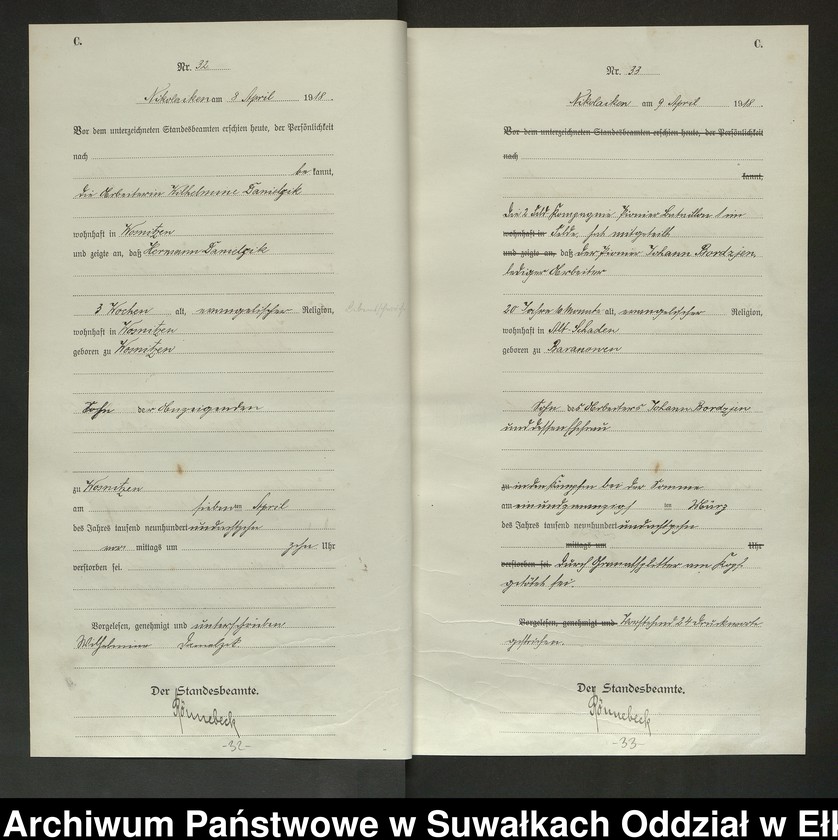 C.
Nr. 32
Nikolaiken am 8 April 1918.
Vor dem unterzeichneten Standesbeamten erschien heute, der Persönlichkeit
nach
be kannt,
die Arbeiterin Wilhelmine Danielzik
wohnhaft in Womitzen
und zeigte an, daß Hermann Danielzik
3 Wochen alt, evangelischer Religion,
wohnhaft in Womitzen
geboren zu Womitzen
Sohn der Anzeigenden
zu Womitzen
am sieben April
des Jahres tausend neunhundert undachtzehn
vor mittags um zehn Uhr
verstorben sei.
Vorgelesen, genehmigt und unterschrieben
Wilhelmine Danielzik.
Der Standesbeamte.
Rönnebeck
-32-
C.
Nr. 33
Nikolaiken am 9 April 1918.
Vor dem unterzeichneten Standesbeamten erschien heute, der Persönlichkeit
nach
kannt,
Die 2 Feld Kompagnie Pionier Bataillon 1 im
wohnhaft in Felde hat mitgeteilt
und zeigte an, daß der Pionier Johann Bordzjen
lediger Arbeiter
20 Jahre 6 Monate alt, evangelischer Religion,
wohnhaft in Alt-Schaden
geboren zu Baranowen
Sohn des Arbeiters Johann Bordzjen
und dessen Ehefrau
zu in den Kämpfen bei der Somme
am einundzwanzigs im März
des Jahres tausend neunhundert undachtzehn
mittags um Uhr
verstorben sei. durch Granatsplitter am Kopf
getötet sei.
Vorgelesen, genehmigt und Vorstehend 24 Druckworte
gestrichen.
Der Standesbeamte.
Rönnebeck
-33-
Archiwum Państwowe w Suwałkach Oddział w Eł